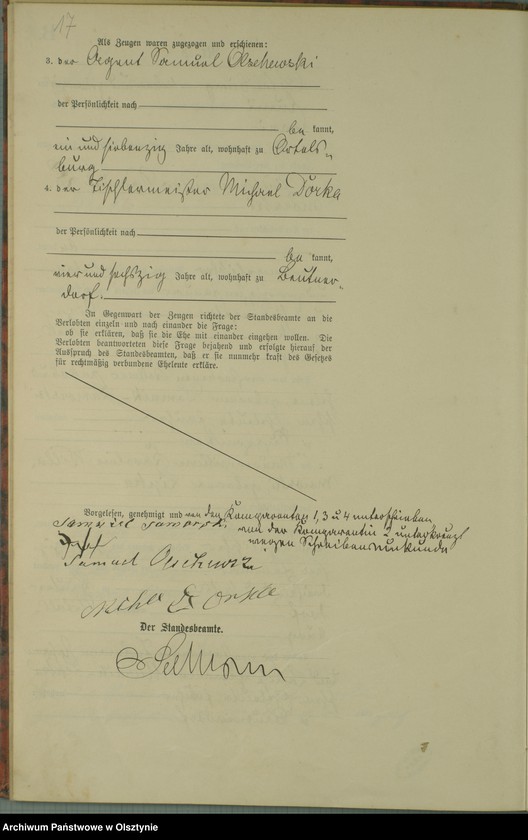 17
Als Zeugen waren zugezogen und erschienen:
3. der Agent Samuel Olschewski
der Persönlichkeit nach
be kannt,
ein und siebenzig Jahre alt, wohnhaft zu Ortels-
burg
4. der Tischlermeister Michael Dorka
der Persönlichkeit nach
be kannt,
vier und sechszig Jahre alt, wohnhaft zu Beutner-
dorf.
In Gegenwart der Zeugen richtete der Standesbeamte an die
Verlobten einzeln und nach einander die Frage:
ob sie erklären, daß sie die Ehe mit einander eingehen wollen. Die
Verlobten beantworteten diese Frage bejahend und erfolgte hierauf der
Ausspruch des Standesbeamten, daß er sie nunmehr kraft des Gesetzes
für rechtmäßig verbundene Eheleute erkläre.
Vorgelesen, genehmigt und von den Komparenten 1, 3 u 4 unterschrieben
von der Komparentin 2 unterkreuzt
wegen Schreibensunkunde
Samuel
Samuel
Der Standesbeamte.
Archiwum Państwowe w Olsztynie